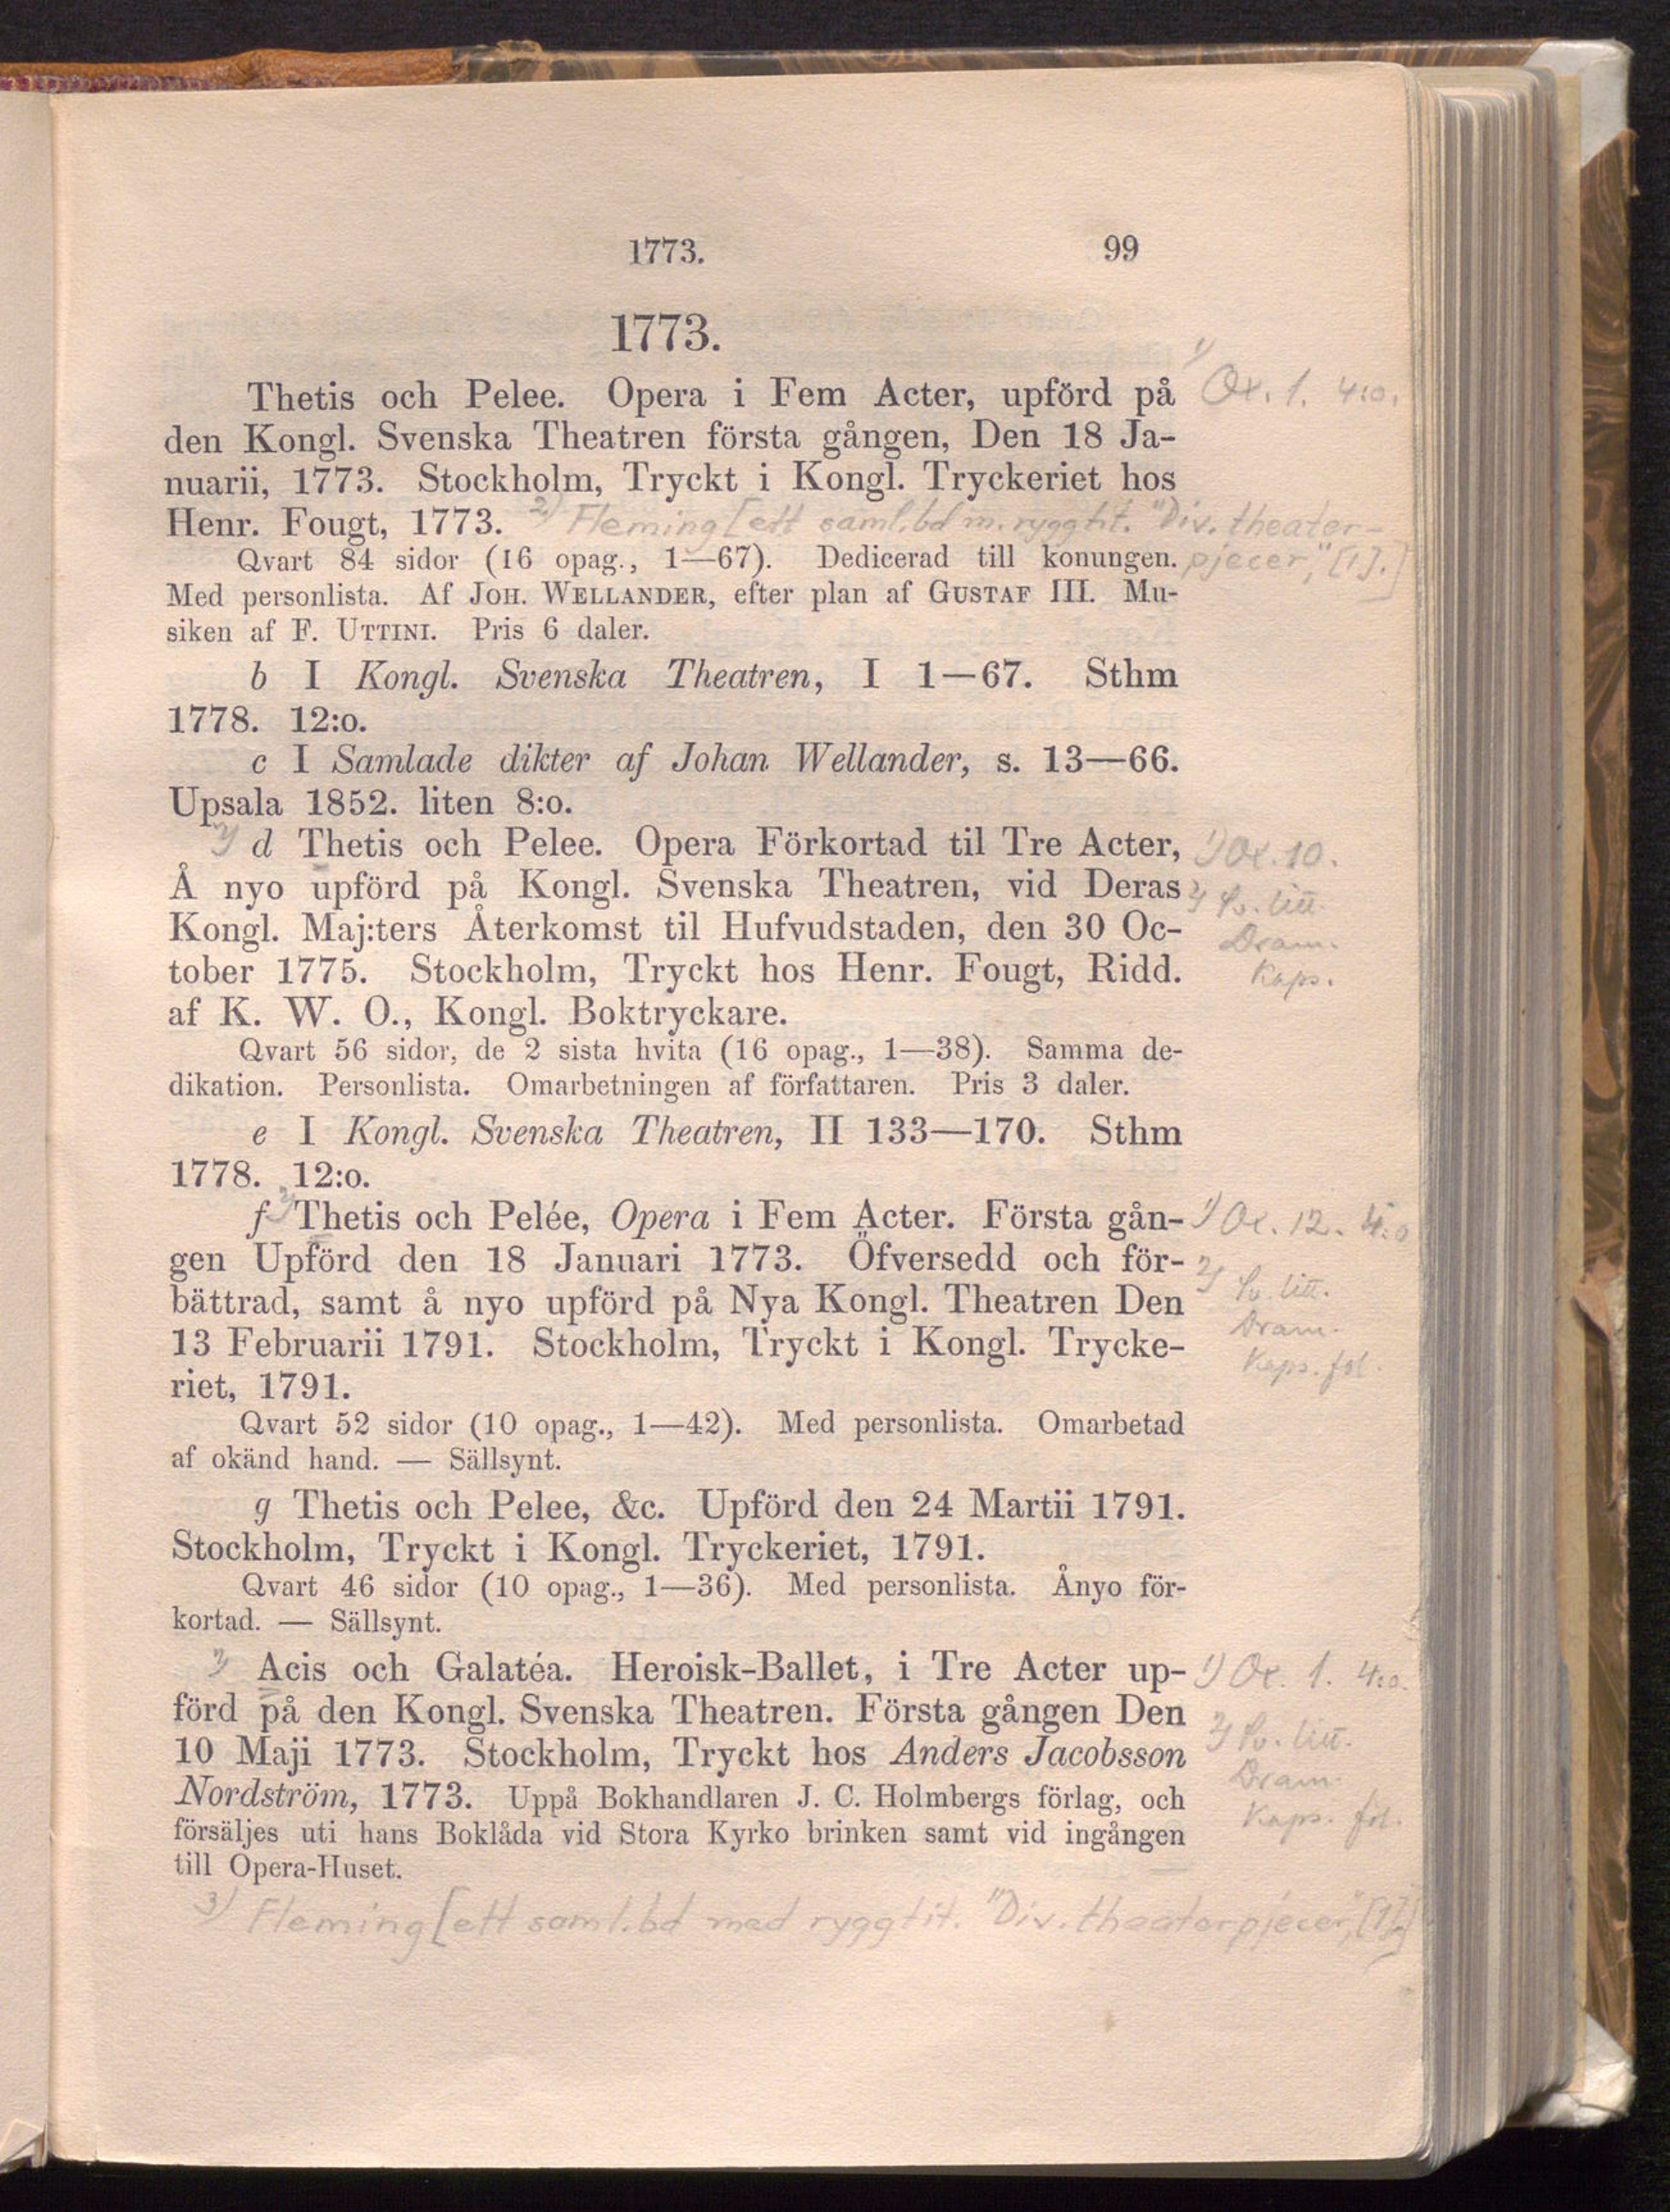 1773. 99
1773.
1) Ox. 1. 4:o.
Thetis och Pelee. Opera i Fem Acter, upförd på
den Kongl. Svenska Theatren första gången, Den 18 Ja-
nuarii, 1773. Stockholm, Tryckt i Kongl. Tryckeriet hos
Henr. Fougt, 1773. 2) Fleming [ett saml.bd m. ryggtit. "Div. theater-
pjecer," [1].]
Qvart 84 sidor (16 opag., 1—67). Dedicerad till konungen.
Med personlista. Af JOH. WELLANDER, efter plan af GUSTAF III. Mu-
siken af F. UTTINI. Pris 6 daler.
b I Kongl. Svenska Theatren, I 1—67. Sthm
1778. 12:o.
c I Samlade dikter af Johan Wellander, s. 13—66.
Upsala 1852. liten 8:o.
2) d Thetis och Pelee. Opera Förkortad til Tre Acter,
Å nyo upförd på Kongl. Svenska Theatren, vid Deras
Kongl. Maj:ters Återkomst til Hufvudstaden, den 30 Oc-
tober 1775. Stockholm, Tryckt hos Henr. Fougt, Ridd.
af K. W. O., Kongl. Boktryckare.
1) Ox. 10.
2) Sv. litt.
Dram.
Kaps.
Qvart 56 sidor, de 2 sista hvita (16 opag., 1—38). Samma de-
dikation. Personlista. Omarbetningen af författaren. Pris 3 daler.
e I Kongl. Svenska Theatren, II 133—170. Sthm
1778. 12:o.
f 2) Thetis och Pelée, Opera i Fem Acter. Första gån-
gen Upförd den 18 Januari 1773. Öfversedd och för-
bättrad, samt å nyo upförd på Nya Kongl. Theatren Den
13 Februarii 1791. Stockholm, Tryckt i Kongl. Trycke-
riet, 1791.
1) Ox. 12. 4:o
2) Sv. litt.
Dram.
Kaps. fol.
Qvart 52 sidor (10 opag., 1—42). Med personlista. Omarbetad
af okänd hand. — Sällsynt.
g Thetis och Pelee, &c. Upförd den 24 Martii 1791.
Stockholm, Tryckt i Kongl. Tryckeriet, 1791.
Qvart 46 sidor (10 opag., 1—36). Med personlista. Ånyo för-
kortad. — Sällsynt.
2) Acis och Galatéa. Heroisk-Ballet, i Tre Acter up-
förd på den Kongl. Svenska Theatren. Första gången Den
10 Maji 1773. Stockholm, Tryckt hos Anders Jacobsson
Nordström, 1773. Uppå Bokhandlaren J. C. Holmbergs förlag, och
försäljes uti hans Boklåda vid Stora Kyrko brinken samt vid ingången
till Opera-Huset.
1) Ox. 1. 4:o.
2) Sv. litt.
Dram.
Kaps. fol.
3) Fleming [ett saml.bd med ryggtit. "Div. theaterpjecer," [1].]